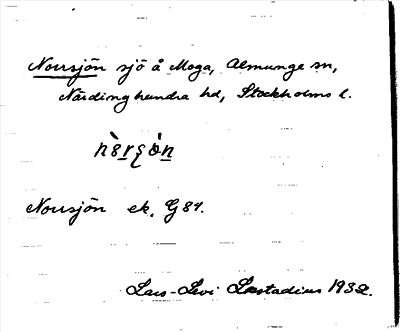 Norrsjön sjö å Moga, Almunge sn,
Närdinghundra hd, Stockholms l.
Norrsjön ek. G 84.
Lars-Levi Læstadius 1932.